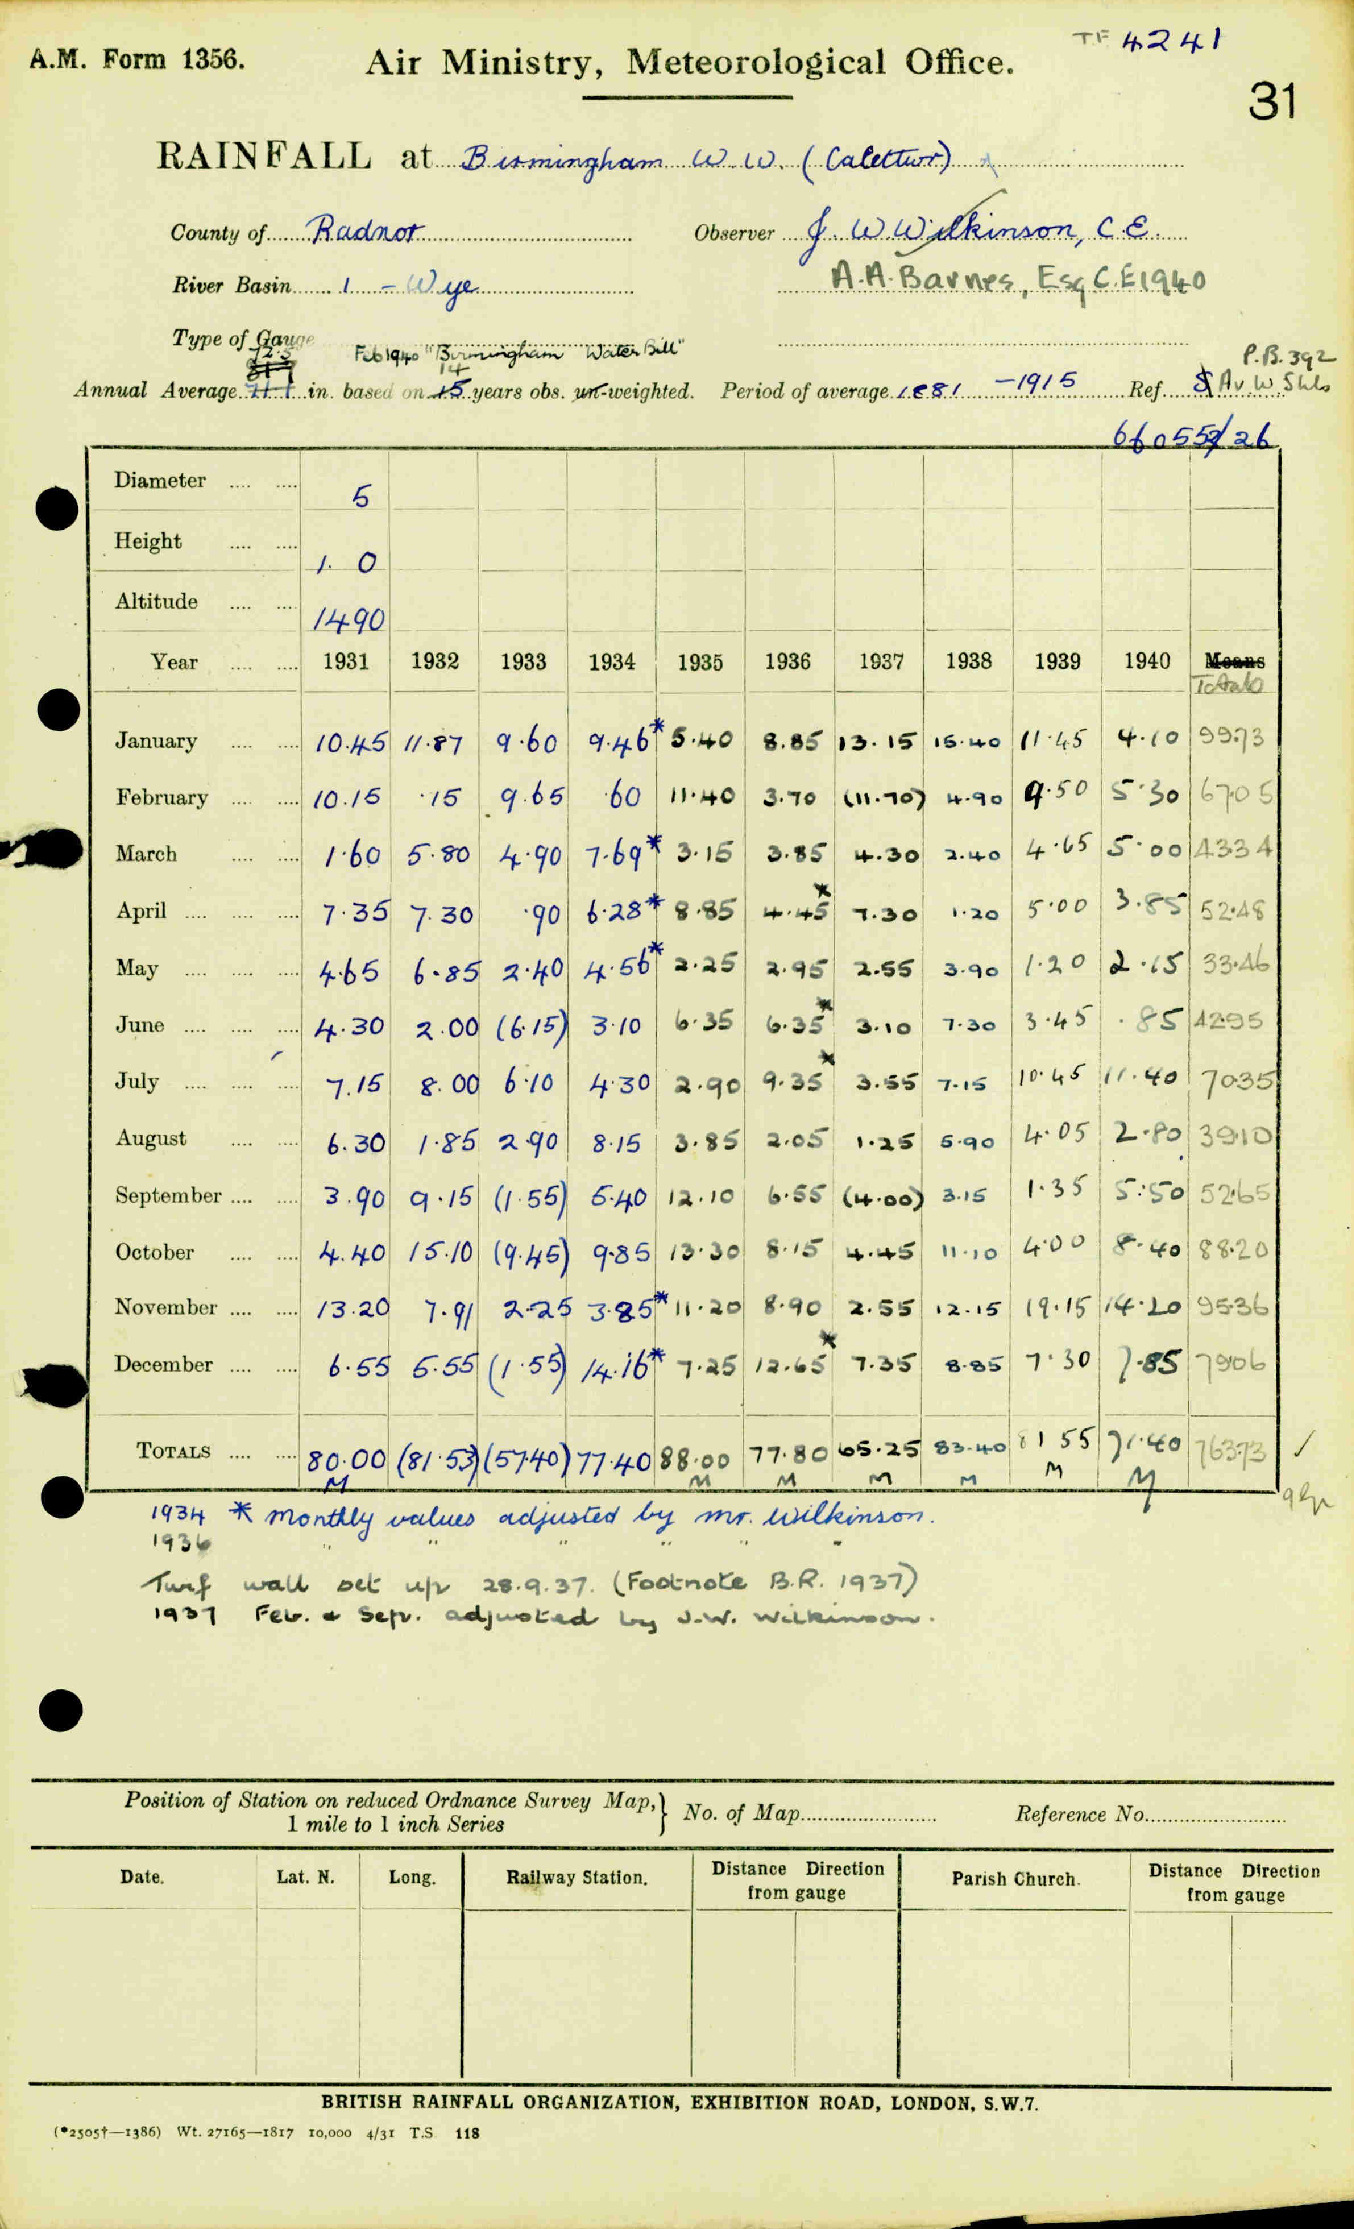 TF 4241
A.M. Form 1356. Air Ministry, Meteorological Office.
31
RAINFALL at Birmingham W.W. (Calettwr)
County of Radnor Observer J. W Wilkinson, C.E.
River Basin 1 - Wye A.A. Barnes, Esq C.E 1940
Type of Gauge
72.5 Feb 1940 "Birmingham Water Bill" P.B. 392
14
Annual Average in. based on 15 years obs. un-weighted. Period of average 1881 - 1915 Ref. Av. W. Shls
66055/26
Diameter .... .... 5
Height .... .... 1. 0
Altitude .... .... 1490
Year .... .... 1931 1932 1933 1934 1935 1936 1937 1938 1939 1940 Means
Totals
January .... .... 10.45 11.87 9.60 9.46* 5.40 8.85 13.15 15.40 11.45 4.10 99.73
February .... .... 10.15 .15 9.65 .60 11.40 3.70 (11.70) 4.90 9.50 5.30 67.05
March .... .... 1.60 5.80 4.90 7.69* 3.15 3.85 4.30 2.40 4.65 5.00 43.34
April .... .... .... 7.35 7.30 .90 6.28* 8.85 4.45* 7.30 1.20 5.00 3.85 52.48
May .... .... .... 4.65 6.85 2.40 4.56* 2.25 2.95 2.55 3.90 1.20 2.15 33.46
June .... .... .... 4.30 2.00 (6.15) 3.10 6.35 6.35* 3.10 7.30 3.45 .85 42.95
July .... .... .... 7.15 8.00 6.10 4.30 2.90 9.35* 3.55 7.15 10.45 11.40 70.35
August .... .... 6.30 1.85 2.90 8.15 3.85 2.05 1.25 5.90 4.05 2.80 39.10
September .... .... 3.90 9.15 (1.55) 5.40 12.10 6.55 (4.00) 3.15 1.35 5.50 52.65
October .... .... 4.40 15.10 (9.45) 9.85 13.30 8.15 4.45 11.10 4.00 8.40 88.20
November .... .... 13.20 7.91 2.25 3.85* 11.20 8.90 2.55 12.15 19.15 14.20 95.36
December .... .... 6.55 5.55 (1.55) 14.16* 7.25 12.65* 7.35 8.85 7.30 7.85 79.06
TOTALS .... .... 80.00 (81.53) (57.40) 77.40 88.00 77.80 65.25 83.40 81 55 71.40 763.73
M M M M M M M
1934 * monthly values adjusted by mr. Wilkinson.
1936 " " " " " "
Turf wall set up 28.9.37. (Footnote B.R. 1937)
1937 Feb. & Sep. adjusted by J.W. Wilkinson.
Position of Station on reduced Ordnance Survey Map,} No. of Map Reference No.
1 mile to 1 inch Series
Date. Lat. N. Long. Railway Station. Distance Direction from gauge Parish Church. Distance Direction from gauge
BRITISH RAINFALL ORGANIZATION, EXHIBITION ROAD, LONDON, S.W.7.
(*2505†—1386) Wt. 27165—1817 10,000 4/31 T.S 118